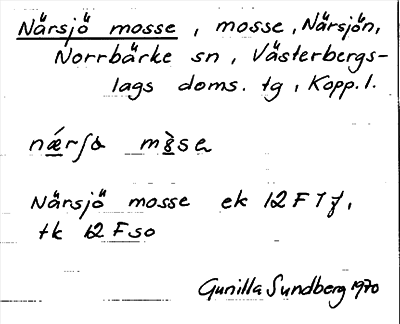 Närsjö mosse, mosse, Närsjön,
Norrbärke sn, Västerbergs-
lags doms. tg, Kopp. l.
mosse
Närsjö mosse ek 12 F 7 f,
tk 12 F so
Gunilla Sundberg 1970